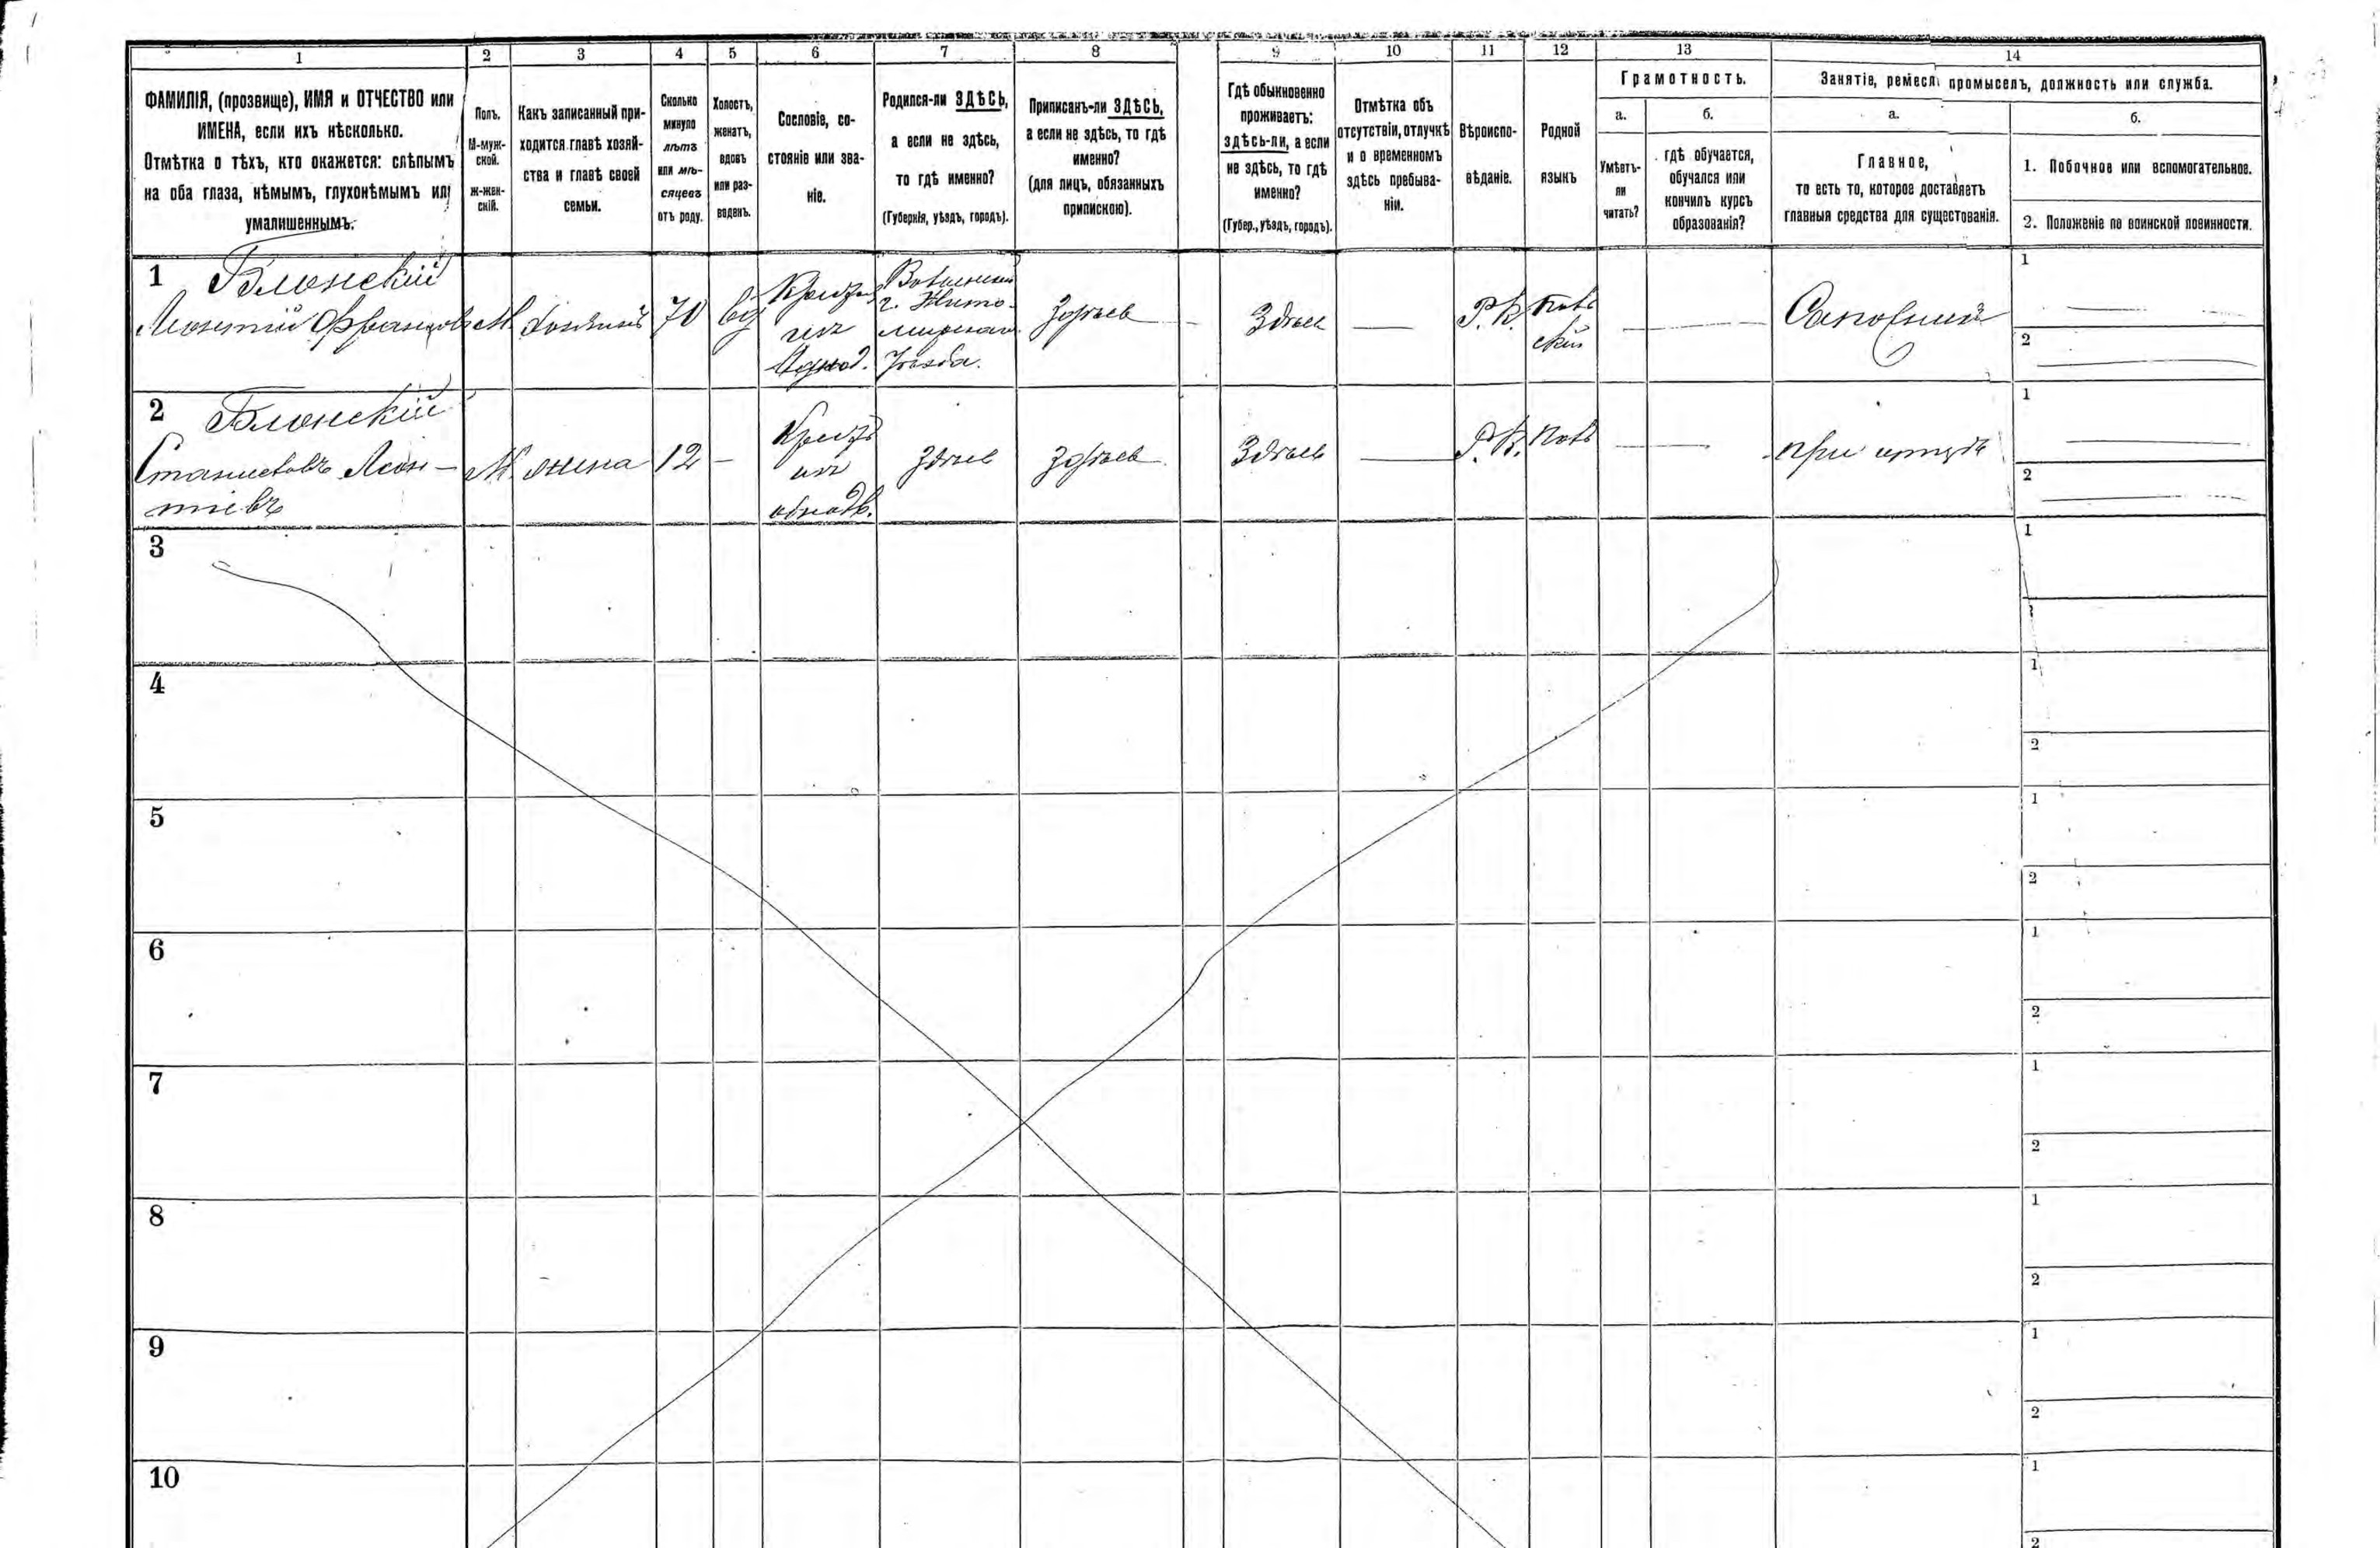 1 2 3 4 5 6 7 8 9 10 11 12 13 14
ФАМИЛІЯ, (прозвище), ИМЯ и ОТЧЕСТВО или
ИМЕНА, если ихъ нѣсколько.
Отмѣтка о тѣхъ, кто окажется: слѣпымъ
на оба глаза, нѣмымъ, глухонѣмымъ или
умалишеннымъ.
Полъ.
М-муж-
ской.
ж-жен-
скій.
Какъ записанный при-
ходится главѣ хозяй-
ства и главѣ своей
семьи.
Сколько
минуло
лѣтъ
или мѣ-
сяцевъ
отъ роду.
Холостъ,
женатъ,
вдовъ
или раз-
веденъ.
Сословіе, со-
стояніе или зва-
ніе.
Родился-ли ЗДѢСЬ,
а если не здѣсь,
то гдѣ именно?
(Губернія, уѣздъ, городъ).
Приписанъ-ли ЗДѢСЬ,
а если не здѣсь, то гдѣ
именно?
(для лицъ, обязанныхъ
припискою).
Гдѣ обыкновенно
проживаетъ:
здѣсь-ли, а если
не здѣсь, то гдѣ
именно?
(Губер., уѣздъ, городъ).
Отмѣтка объ
отсутствіи, отлучкѣ
и о временномъ
здѣсь пребыва-
ніи.
Вѣроиспо-
вѣданіе.
Родной
языкъ
Грамотность.
а.
Умѣетъ-
ли
читать?
б.
гдѣ обучается,
обучался или
кончилъ курсъ
образованія?
Занятіе, ремесл промыселъ, должность или служба.
а.
Главное,
то есть то, которое доставляетъ
главныя средства для сущестованія.
б.
1. Побочное или вспомогательное.
2. Положеніе по воинской повинности.
1
Блонскій
Леонтій Францовъ
М
Хозяинъ
70
вд
Крестья
изъ
Однод.
Волынской
г. Жито-
мирскаго
Уѣзда.
Здѣсь
Здѣсь
Р. К.
Поль
скій
1
2
2
Блонскій
Станиславъ Леон-
тіевъ
М.
сына
12
Крест
изъ
однодв.
Здѣсь
Здѣсь
Здѣсь
Р. К.
Поль
при отцѣ
1
2
3
1
4
1
2
5
1
2
6
1
2
7
1
2
8
1
2
9
1
2
10
1
2